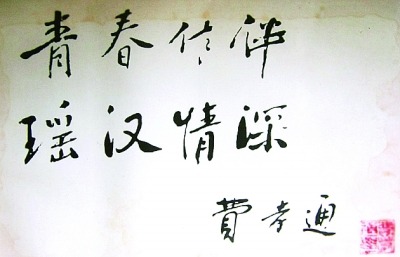 青春作伴
瑶汉情深
費孝通